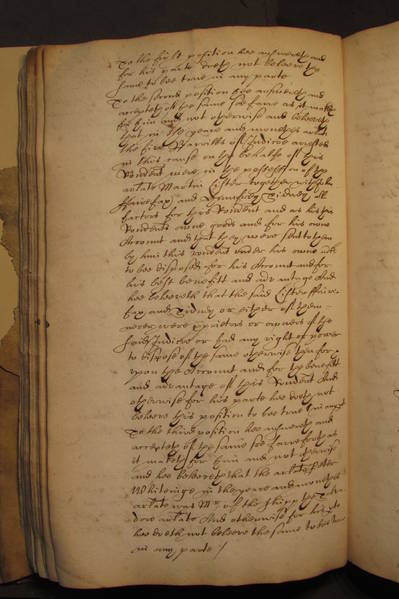 To the first position hee answereth and
for his parte doeth not beleeve the
same to bee true in any parte
To the second position hee answereth and
accepteth of the same soe farre as it maketh
for him and not otherwise and beleeveth
that in the yeare and moneths arlate
the five Barrells of Indico arrested
in this cause on the behalfe of this
Rendent were in the possession of the
arlate Martin Lister together with
ffairefax and Humfrey Sidney
factors for this Rendent and as his this
Rendents owne goods and for his owne
Account and that they were sent to them
by him this Rendent under his owne
to bee disposed for his Account and for
his best benefitt and advantage And
hee beleeveth that the said Lister ffaire-
fax and Sidney or either of them
never were Proprietors or owners of the
said Indico or had any right or power
to dispose of the same otherwise then for
upon the Account and for the benefitt
and advantage of this Rendent And
otherwise for his parte hee doeth not
beleeve this position to bee true in any parte
To the third position hee answereth and
accepteth of the same soe farre forth as
it maketh for him and not otherwise
and hee beleeveth that the arlate Peter
Whiteinge in the yeare and moneths
arlate was Mr of the shipp the
arlate And otherwise for his parte
hee doeth not beleeve the same to bee true
in any parte /